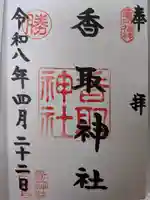 奉拝
香取神社
令和八年四月二十二日
香取
神社
勝